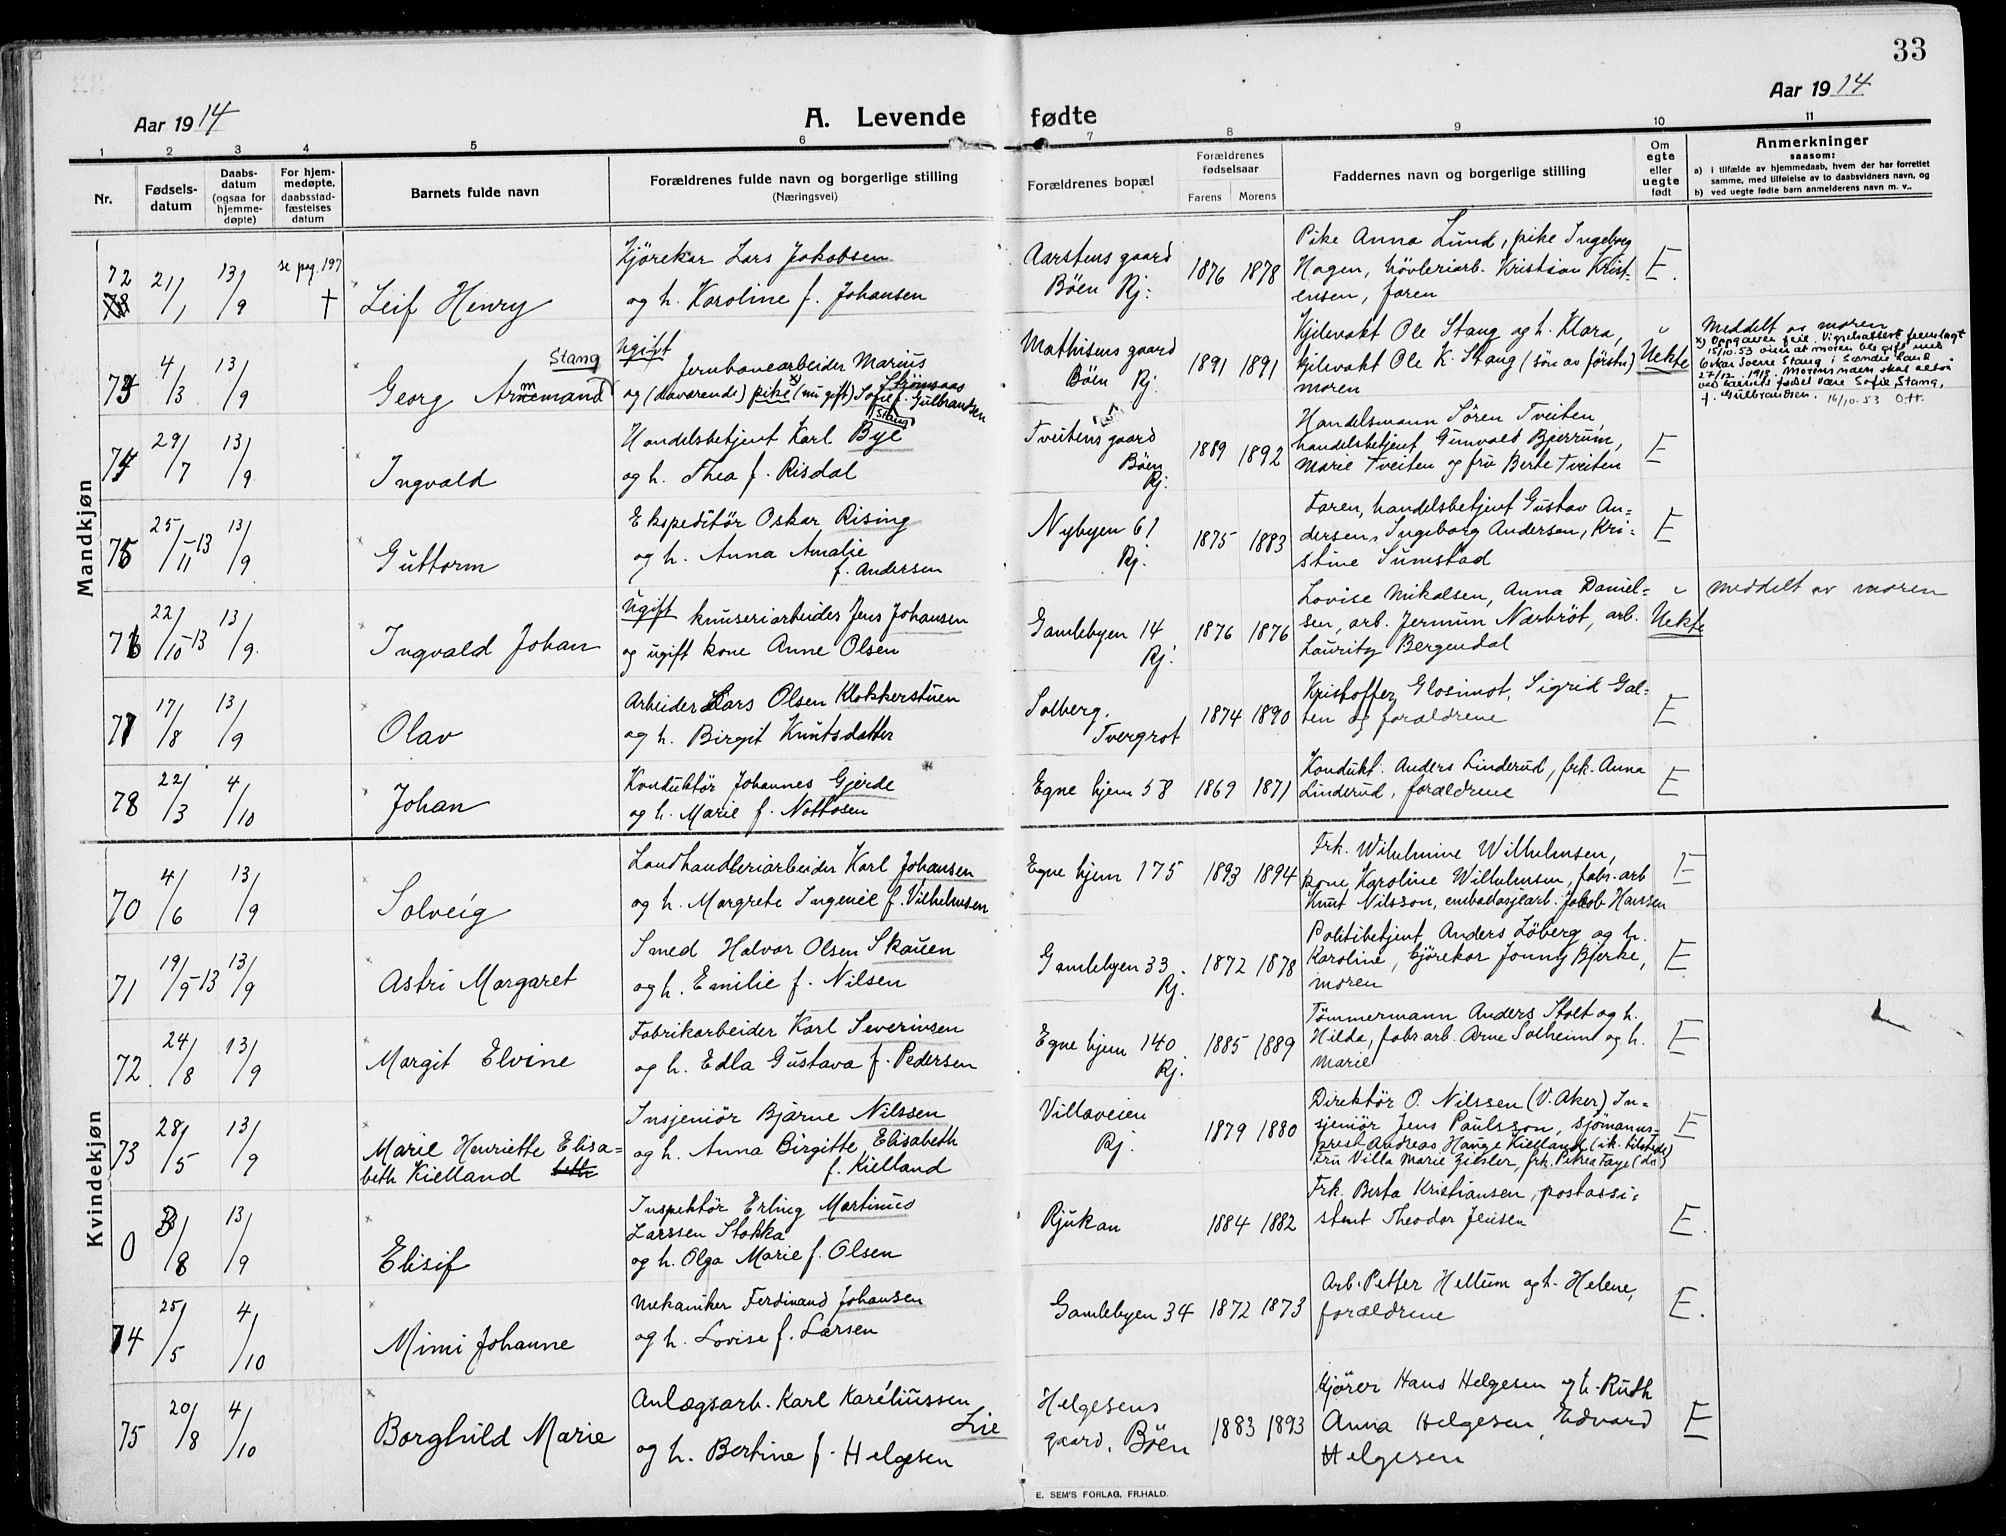 33
Aar 1914
A. Levende fødte
Aar 1914
1 2 3 4 5 6 7 8 9 10 11
Nr.
Fødsels-
datum
Daabs-
datum
(ogsaa for
hjemme-
døpte)
For hjem-
medøpte,
daabsstad-
fæstelses
datum
Barnets fulde navn
Forældrenes fulde navn og borgerlige stilling
(Næringsvei)
Forældrenes bopæl
Forældrenes
fødselsaar
Farens Morens
Faddernes navn og borgerlige stilling
Om
egte
eller
uegte
født
Anmerkninger
saasom:
a) i tilfælde av hjemmedaab, hvem der har forrettet
samme, med tilføielse av to daabsvidners navn, og
b) ved uegte fødte barn anmelderens navn m. v..
Mandkjøn
72 21/1 13/9 se pag. 197 †
Leif Henry
Kjørekar Lars Jakobsen
og h. Karoline f. Johansen
Aarstensgaard
Bøen Rj:
1876 1878
Pike Anna Lund, pike Ingeborg
Hagen, høvleriarb. Kristian Krist-
ensen, faren
E.
73 4/3 13/9
Stang
Georg Armand
Ugift Jernbanearbeider Marius Strømsaas
og (daværende) pike x) (nu gift) Sofie f. Gulbrandsen
Stang
Mathisens gaard
Bøen Rj.
1891 1891
Kjilevakt Ole Stang og h. Klara,
kjilevakt Ole K. Stang (søn av førstn)
moren
Uekte
Meddelt av moren
x) Oppgaven feil. Vigselsattest fremlagt
15/10.53 viser at moren ble gift med
Oskar Sverre Stang i Søndre Land
27/12.1912. Morens navn skal altså
ved barnets fødsel være Sofie Stang,
f. Gulbrandsen. 16/10.53
74 29/7 13/9
Ingvald
Handelsbetjent Karl Bye
og h. Thea f. Risdal
Tveitens gaard
Bøen
Rj.
1889 1892
Handelsmann Søren Tveiten,
handelsbetjent Gunvald Bjerrum,
Marie Tveiten og fru Berte Tveiten
E
75 25/11-13 13/9
Guttorm
Ekspeditør Oskar Rising
og h. Anna Amalie
f. Andersen
Nybyen 61
Rj.
1875 1883
Faren, handelsbetjent Gustav An-
dersen, Ingeborg Andersen, Kri-
stine Sumstad
E
76 22/10-13 13/9
Ingvald Johan
Ugift knuseriarbeider Jens Johansen
og ugift kone Anne Olsen
Gamlebyen 14
Rj.
1876 1876
Lovise Mikalsen, Anna Daniel-
sen, arb. Jermun Nærbrøt, arb.
Lauritz Bergendal
Uekte
meddelt av moren
77 17/8 13/9
Olav
Arbeider Lars Olsen Klokkerstuen
og h. Birgit Knutsdatter
Solberg.
Tvergrot
1874 1890
Kristoffer Glosimot, Sigrid Gal-
ten og forældrene
E
78 22/3 4/10
Johan
Konduktør Johannes Gjerde
og h. Marie f. Nottosen
Egne hjem 58
1869 1871
Kondukt. Anders Linderud, frk. Anna
Linderud, forældrene
E
Kvindekjøn
70 4/6 13/9
Solveig
Landhandleriarbeider Karl Johansen
og h. Margrete Ingenie f. Vilhelmsen
Egne hjem 175
1893 1894
Frk. Wilhelmine Wilhelmsen,
kone Karoline Wilhelmsen, fabr. arb
Knut Nilsson, embadasjearb. Jakob Hansen
E
71 19/9-13 13/9
Astri Margaret
Smed Halvor Olsen Skauen
og h. Emilie f. Nilsen
Gamlebyen 33.
Rj.
1872 1878
Politibetjent Anders Løberg og h.
Karoline, kjørekar Jonny Bjerke,
moren
E
72. 24/8 13/9
Margit Elvine
Fabrikarbeider Karl Severinsen
og h. Edla Gustava f. Pedersen
Egne hjem 140
Rj.
1885 1889
Tømmermann Anders Stolt og h.
Hilda, fabr arb. Arne Solheim og h.
Marie
E
73 28/5 13/9
Marie Henriette Elisa-
beth Kielland
Insjeniør Bjarne Nilssen
og h. Anna Birgitte Elisabeth
f. Kielland
Villaveien
Rj.
1879 1880
Direktør O. Nilssen (V. Aker) In-
sjeniør Jens Paulsson, sjømanns-
prest Andreas Hauge Kielland (ik. tilstede)
Fru Villa Marie Ziesler, frk. Petrea Faye (do)
E
0 3/8 13/9
Elisif
Inspektør Erling Martinus
Larssen Stokka
og h. Olga Marie f. Olsen
Rjukan
1884 1882
Frk. Berta Kristiansen, postassi-
stent Theodor Jensen
E.
74 25/5 4/10
Mimi Johanne
Mekaniker Ferdinand Johansen
og h. Lovise f. Larsen
Gamlebyen 34
1872 1873
Arb. Petter Hellum og h. Helene,
forældrene
E.
75 20/8 4/10
Borghild Marie
Anlægsarb. Karl Karéliussen
Lie
og h. Bertine f. Helgesen
Helgesens
gaard. Bøen
1883 1893
Kjører Hans Helgesen og h. Ruth
Anna Helgesen, Edvard
Helgesen
E
E. SEM'S FORLAG, FR.HALD.